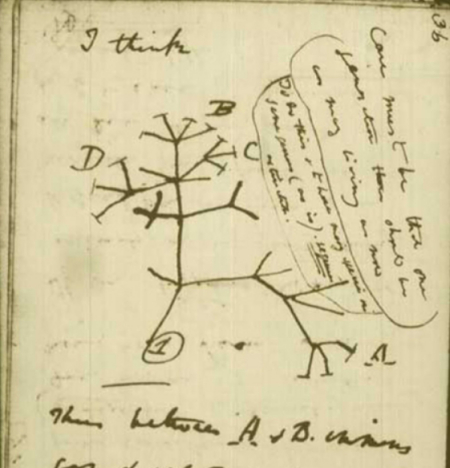 I think
36
B
D
C
A
1
Case must be that one
generation then should be
as many living as now
To do this & to have many species in
same genus (as is). requires
extinction.
Thus between A & B. immens